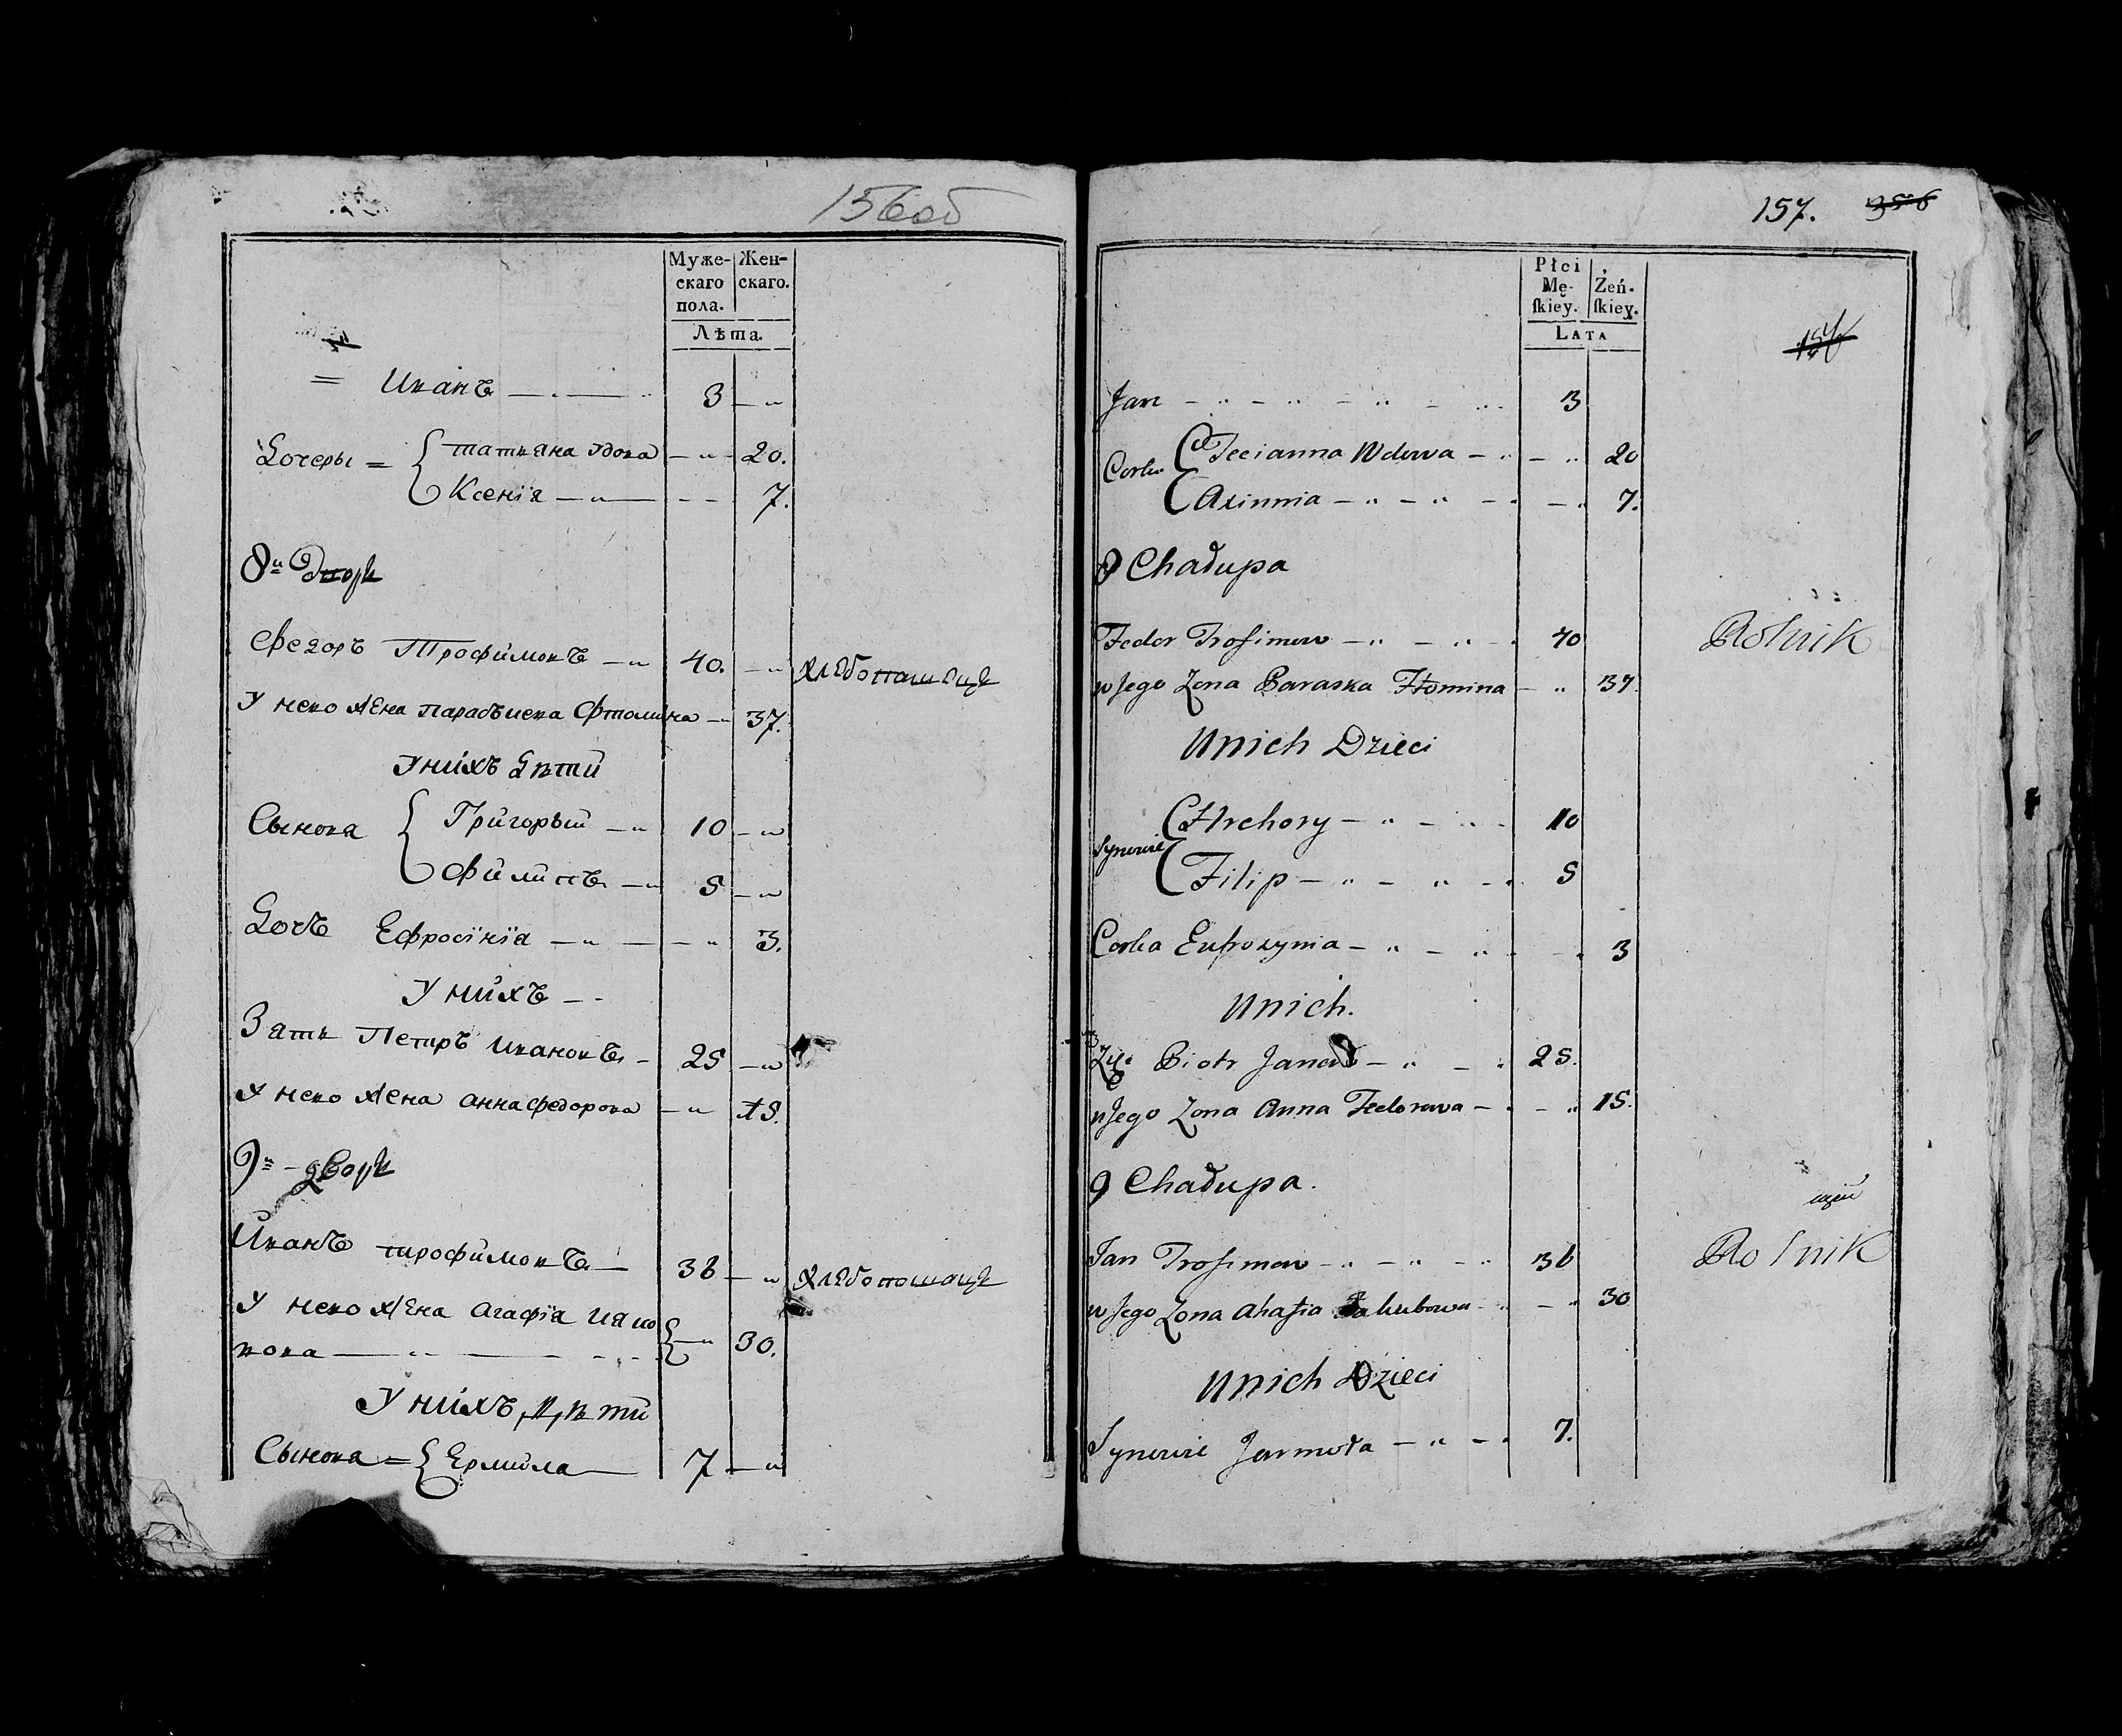 156об
Муже-
скаго
пола.
Жен-
скаго.
Лѣта.
= Иванъ — " — 3 — "
Дочеры = { татьяна удова — " — 20.
Ксенїя — " — - - 7.
8й Дворъ
Федоръ Трофимовъ — " 40. — " хлѣбопашецъ
У нево жена парасъчева Фтомина — " 37.
У нихъ дѣти
Сынова { Григорый — " 10 — "
Филипъ — " 5 — "
Дочъ Ефросїнїя — " — - " 3.
У нихъ — -
Зять Петръ ивановъ - 25 — "
У нево жена анна федорова — " 15.
9й - дворъ
Иванъ трофимовъ — 36 — " хлѣбопошецъ
У нево жена агафїя иако
вова — " — - " - } — " 30.
У нихъ дѣти
Сынова = { Ермила — 7 — "
157. 356
Płci
Mę-
ſkiey.
Żeń-
ſkiey.
LATA
156
Jan - " - " - " - " 3
Corki { Tecianna Wdowa - " - " 20
Axinnia - " - " - " - " 7.
8 Chałupa
Fedor Trofimow - " - " - 40 Rolnik
u Jego Zona Paraska Ftomina - " 37.
U nich Dzieci
Synowie { Hrehory - " - " - 10
Filip - " - " - 5
Corka Eufrozynia - " - " - - 3
U nich.
Zięć Piotr Janow - " - " 25.
u Jego Zona Anna Fedorowa - " - " 15.
9 Chałupa.
щій
Jan Trofimow - " - " - " 36 Rolnik
u Jego Zona Ahafia Jakubowa - " - " 30
U nich Dzieci
Synowie Jarmoła - " - " 7.